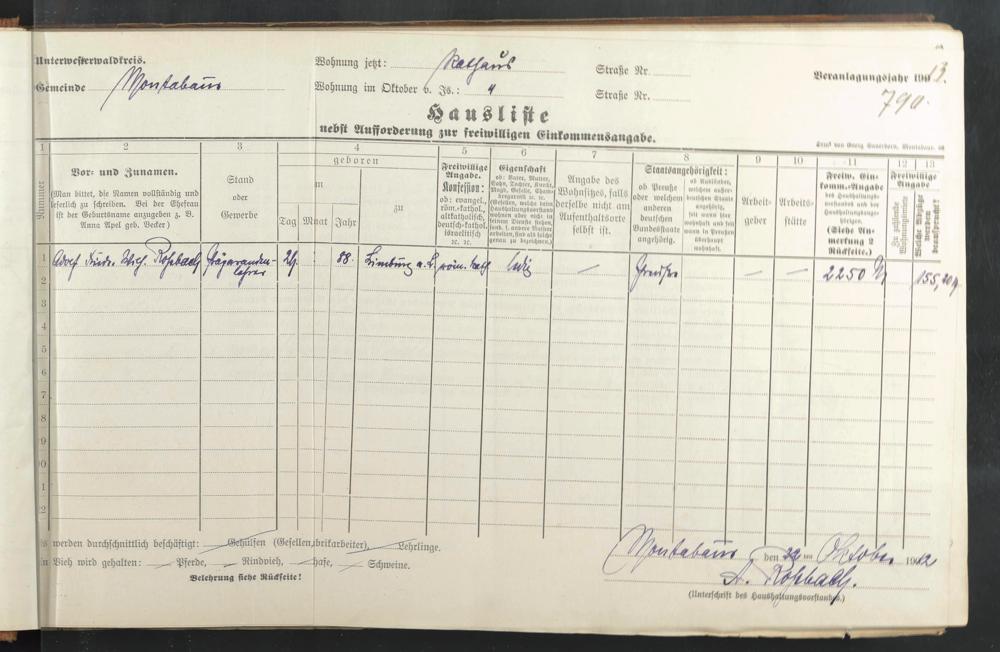 Unterwesterwaldkreis.
Gemeinde Montabaur
Wohnung jetzt: Rathaus Straße Nr.
Wohnung im Oktober v. Js.: " Straße Nr.
Veranlagungsjahr 1913.
790.
Hausliste
nebst Aufforderung zur freiwilligen Einkommensangabe.
Druck von Georg Sauerborn, Montabaur.
1 2 3 4 5 6 7 8 9 10 11 12 13
Nummer
Vor- und Zunamen.
(Man bittet, die Namen vollständig und
leserlich zu schreiben. Bei der Ehefrau
ist der Geburtsname anzugeben z. B.
Anna Apel geb. Becker)
Stand
oder
Gewerbe
geboren
am
Tag Monat Jahr
zu
Freiwillige
Angabe.
Konfession:
ob: evangel.,
röm.-kathol.,
altkatholisch,
deutsch-kathol.
israelitisch
rc. rc.
Eigenschaft
ob: Vater, Mutter,
Sohn, Tochter, Knecht,
Magd, Geselle,
Angabe des
Wohnsitzes, falls
derselbe nicht am
Aufenthaltsorte
selbst ist.
Staatsangehörigkeit:
ob Preuße
oder welchem
anderen
deutschen
Bundesstaate
angehörig.
ob Ausländer,
welchem außer-
deutschen Staate
angehörig,
seit wann hier
wohnhaft und
seit wann in
Preußen
überhaupt
wohnhaft.
Arbeit-
geber
Arbeits-
stätte
Freiw. Ein-
komm.-Angabe
des Haushaltungs-
vorstandes und der
Haushaltungsange-
hörigen.
(Siehe An-
merkung 2
Rückseite.)
Freiwillige
Angabe
Zu zahlende
Wohnungsmiete
Welche Abzüge
werden
beansprucht?
1 Adolf Friedr. Wilh. Roßbach Präparanden- 24. 88. Limburg a. L. röm. kath. ledig — Preuße — — 2250 M 155,20
lehrer
2
3
4
5
6
7
8
9
10
11
12
Es werden durchschnittlich beschäftigt: Gehülfen (Gesellen, Fabrikarbeiter), Lehrlinge.
An Vieh wird gehalten: Pferde, Rindvieh, Schafe, Schweine.
Belehrung siehe Rückseite!
Montabaur den ten Oktober 1912
A. Roßbach.
(Unterschrift des Haushaltungsvorstandes.)